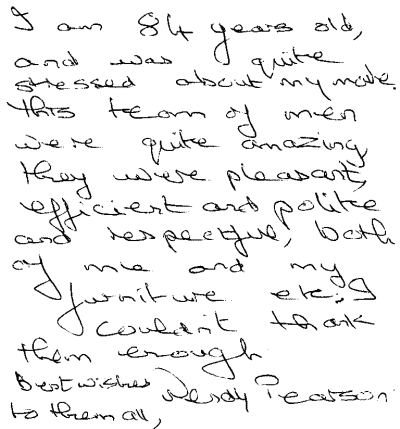 I am 84 years old,
and was quite
stressed about my move.
This team of men
were quite amazing,
they were pleasant,
efficient and polite
and respectful, both
of me and my
furniture etc; I
couldn't thank
them enough
Best wishes Wendy Pearson
to them all,